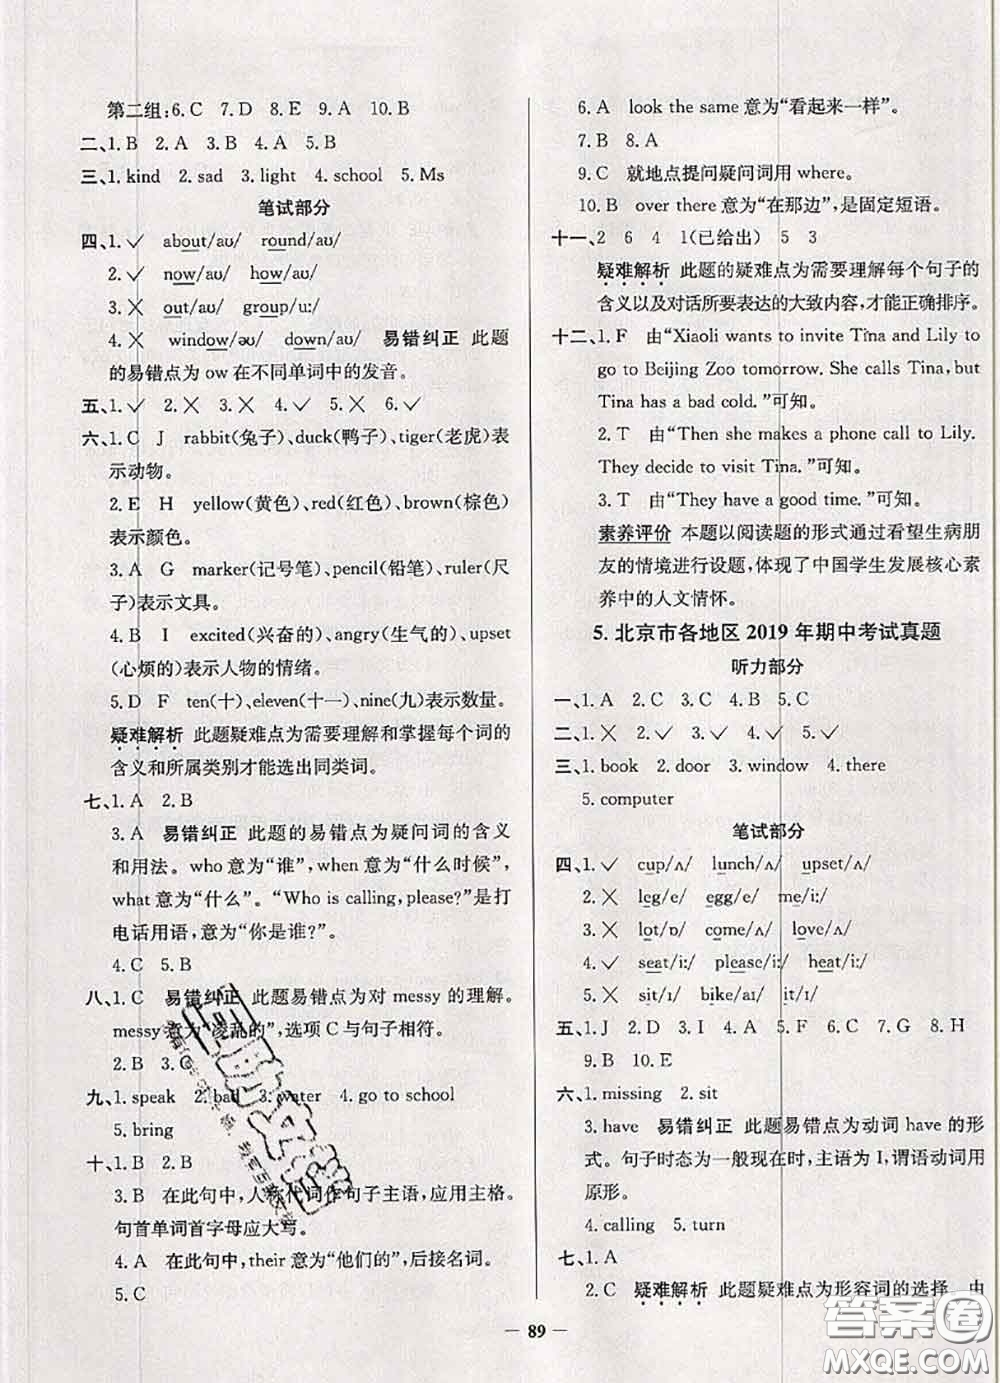 第二组:6. C 7. D 8. E 9. A 10. B
二、1. B 2. A 3. B 4. A 5. B
三、1. kind 2. sad 3. light 4. school 5. Ms
笔试部分
四、1. ✓ about/aʊ/ round/aʊ/
2. ✓ now/aʊ/ how/aʊ/
3. ✗ out/aʊ/ group/u:/
4. ✗ window/əʊ/ down/aʊ/ 易错纠正 此题
的易错点为 ow 在不同单词中的发音。
五、1. ✓ 2. ✗ 3. ✗ 4. ✓ 5. ✗ 6. ✓
六、1. C J rabbit(兔子)、duck(鸭子)、tiger(老虎)表
示动物。
2. E H yellow(黄色)、red(红色)、brown(棕色)
表示颜色。
3. A G marker(记号笔)、pencil(铅笔)、ruler(尺
子)表示文具。
4. B I excited(兴奋的)、angry(生气的)、upset
(心烦的)表示人物的情绪。
5. D F ten(十)、eleven(十一)、nine(九)表示数量。
疑难解析 此题疑难点为需要理解和掌握每个词的
含义和所属类别才能选出同类词。
七、1. A 2. B
3. A 易错纠正 此题的易错点为疑问词的含义
和用法。who 意为“谁”,when 意为“什么时候”,
what 意为“什么”。“Who is calling, please?”是打
电话用语,意为“你是谁?”。
4. C 5. B
八、1. C 易错纠正 此题易错点为对 messy 的理解。
messy 意为“凌乱的”,选项 C 与句子相符。
2. B 3. C
九、1. speak 2. bad 3. water 4. go to school
5. bring
十、1. B 2. B
3. B 在此句中,人称代词作句子主语,应用主格。
句首单词首字母应大写。
4. A 在此句中,their 意为“他们的”,后接名词。
5. C
6. A look the same 意为“看起来一样”。
7. B 8. A
9. C 就地点提问疑问词用 where。
10. B over there 意为“在那边”,是固定短语。
十一、2 6 4 1(已给出) 5 3
疑难解析 此题的疑难点为需要理解每个句子的
含义以及对话所要表达的大致内容,才能正确排序。
十二、1. F 由“Xiaoli wants to invite Tina and Lily to
go to Beijing Zoo tomorrow. She calls Tina, but
Tina has a bad cold.”可知。
2. T 由“Then she makes a phone call to Lily.
They decide to visit Tina.”可知。
3. T 由“They have a good time.”可知。
素养评价 本题以阅读题的形式通过看望生病朋
友的情境进行设题,体现了中国学生发展核心素
养中的人文情怀。
5. 北京市各地区 2019 年期中考试真题
听力部分
一、1. A 2. C 3. C 4. B 5. C
二、1. ✗ 2. ✓ 3. ✓ 4. ✓ 5. ✓
三、1. book 2. door 3. window 4. there
5. computer
笔试部分
四、1. ✓ cup/ʌ/ lunch/ʌ/ upset/ʌ/
2. ✗ leg/e/ egg/e/ me/i:/
3. ✗ lot/ɒ/ come/ʌ/ love/ʌ/
4. ✓ seat/i:/ please/i:/ heat/i:/
5. ✗ sit/ɪ/ bike/aɪ/ it/ɪ/
五、1. J 2. D 3. I 4. A 5. F 6. C 7. G 8. H
9. B 10. E
六、1. missing 2. sit
3. have 易错纠正 此题易错点为动词 have 的形
式。句子时态为一般现在时,主语为 I,谓语动词用
原形。
4. calling 5. turn
七、1. A
2. C 疑难解析 此题疑难点为形容词的选择。由
89
答案圈
MXQE.COM